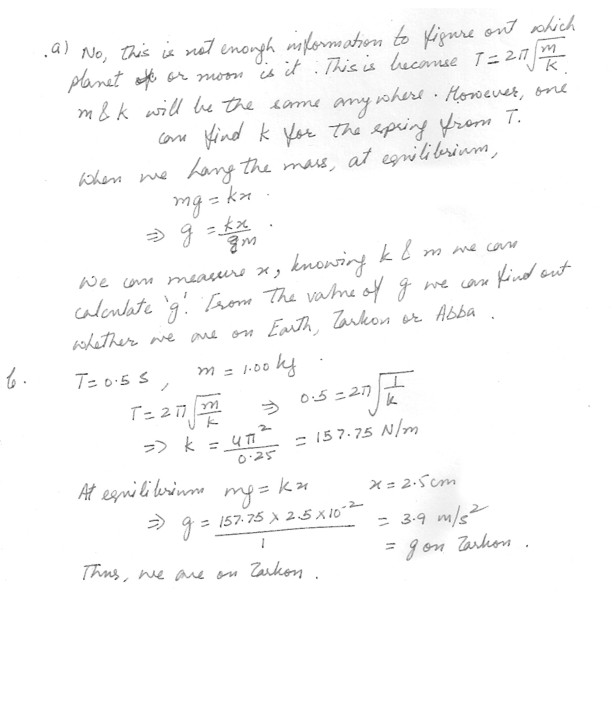 .a) No, this is not enough information to figure out which
planet or moon is it. This is because T = 2π√(m/k)
m & k will be the same anywhere. However, one
can find k for the spring from T.
When we hang the mass, at equilibrium,
mg = kx.
⇒ g = kx/m.
We can measure x, knowing k & m we can
calculate 'g'. From the value of g we can find out
whether we are on Earth, Zarkon or Abba.
b. T = 0.5 s, m = 1.00 kg.
T = 2π√(m/k) ⇒ 0.5 = 2π√(1/k)
⇒ k = 4π²/0.25 = 157.75 N/m
At equilibrium mg = kx x = 2.5 cm
⇒ g = 157.75 x 2.5 x 10⁻²/1 = 3.9 m/s²
= g on Zarkon.
Thus, we are on Zarkon.